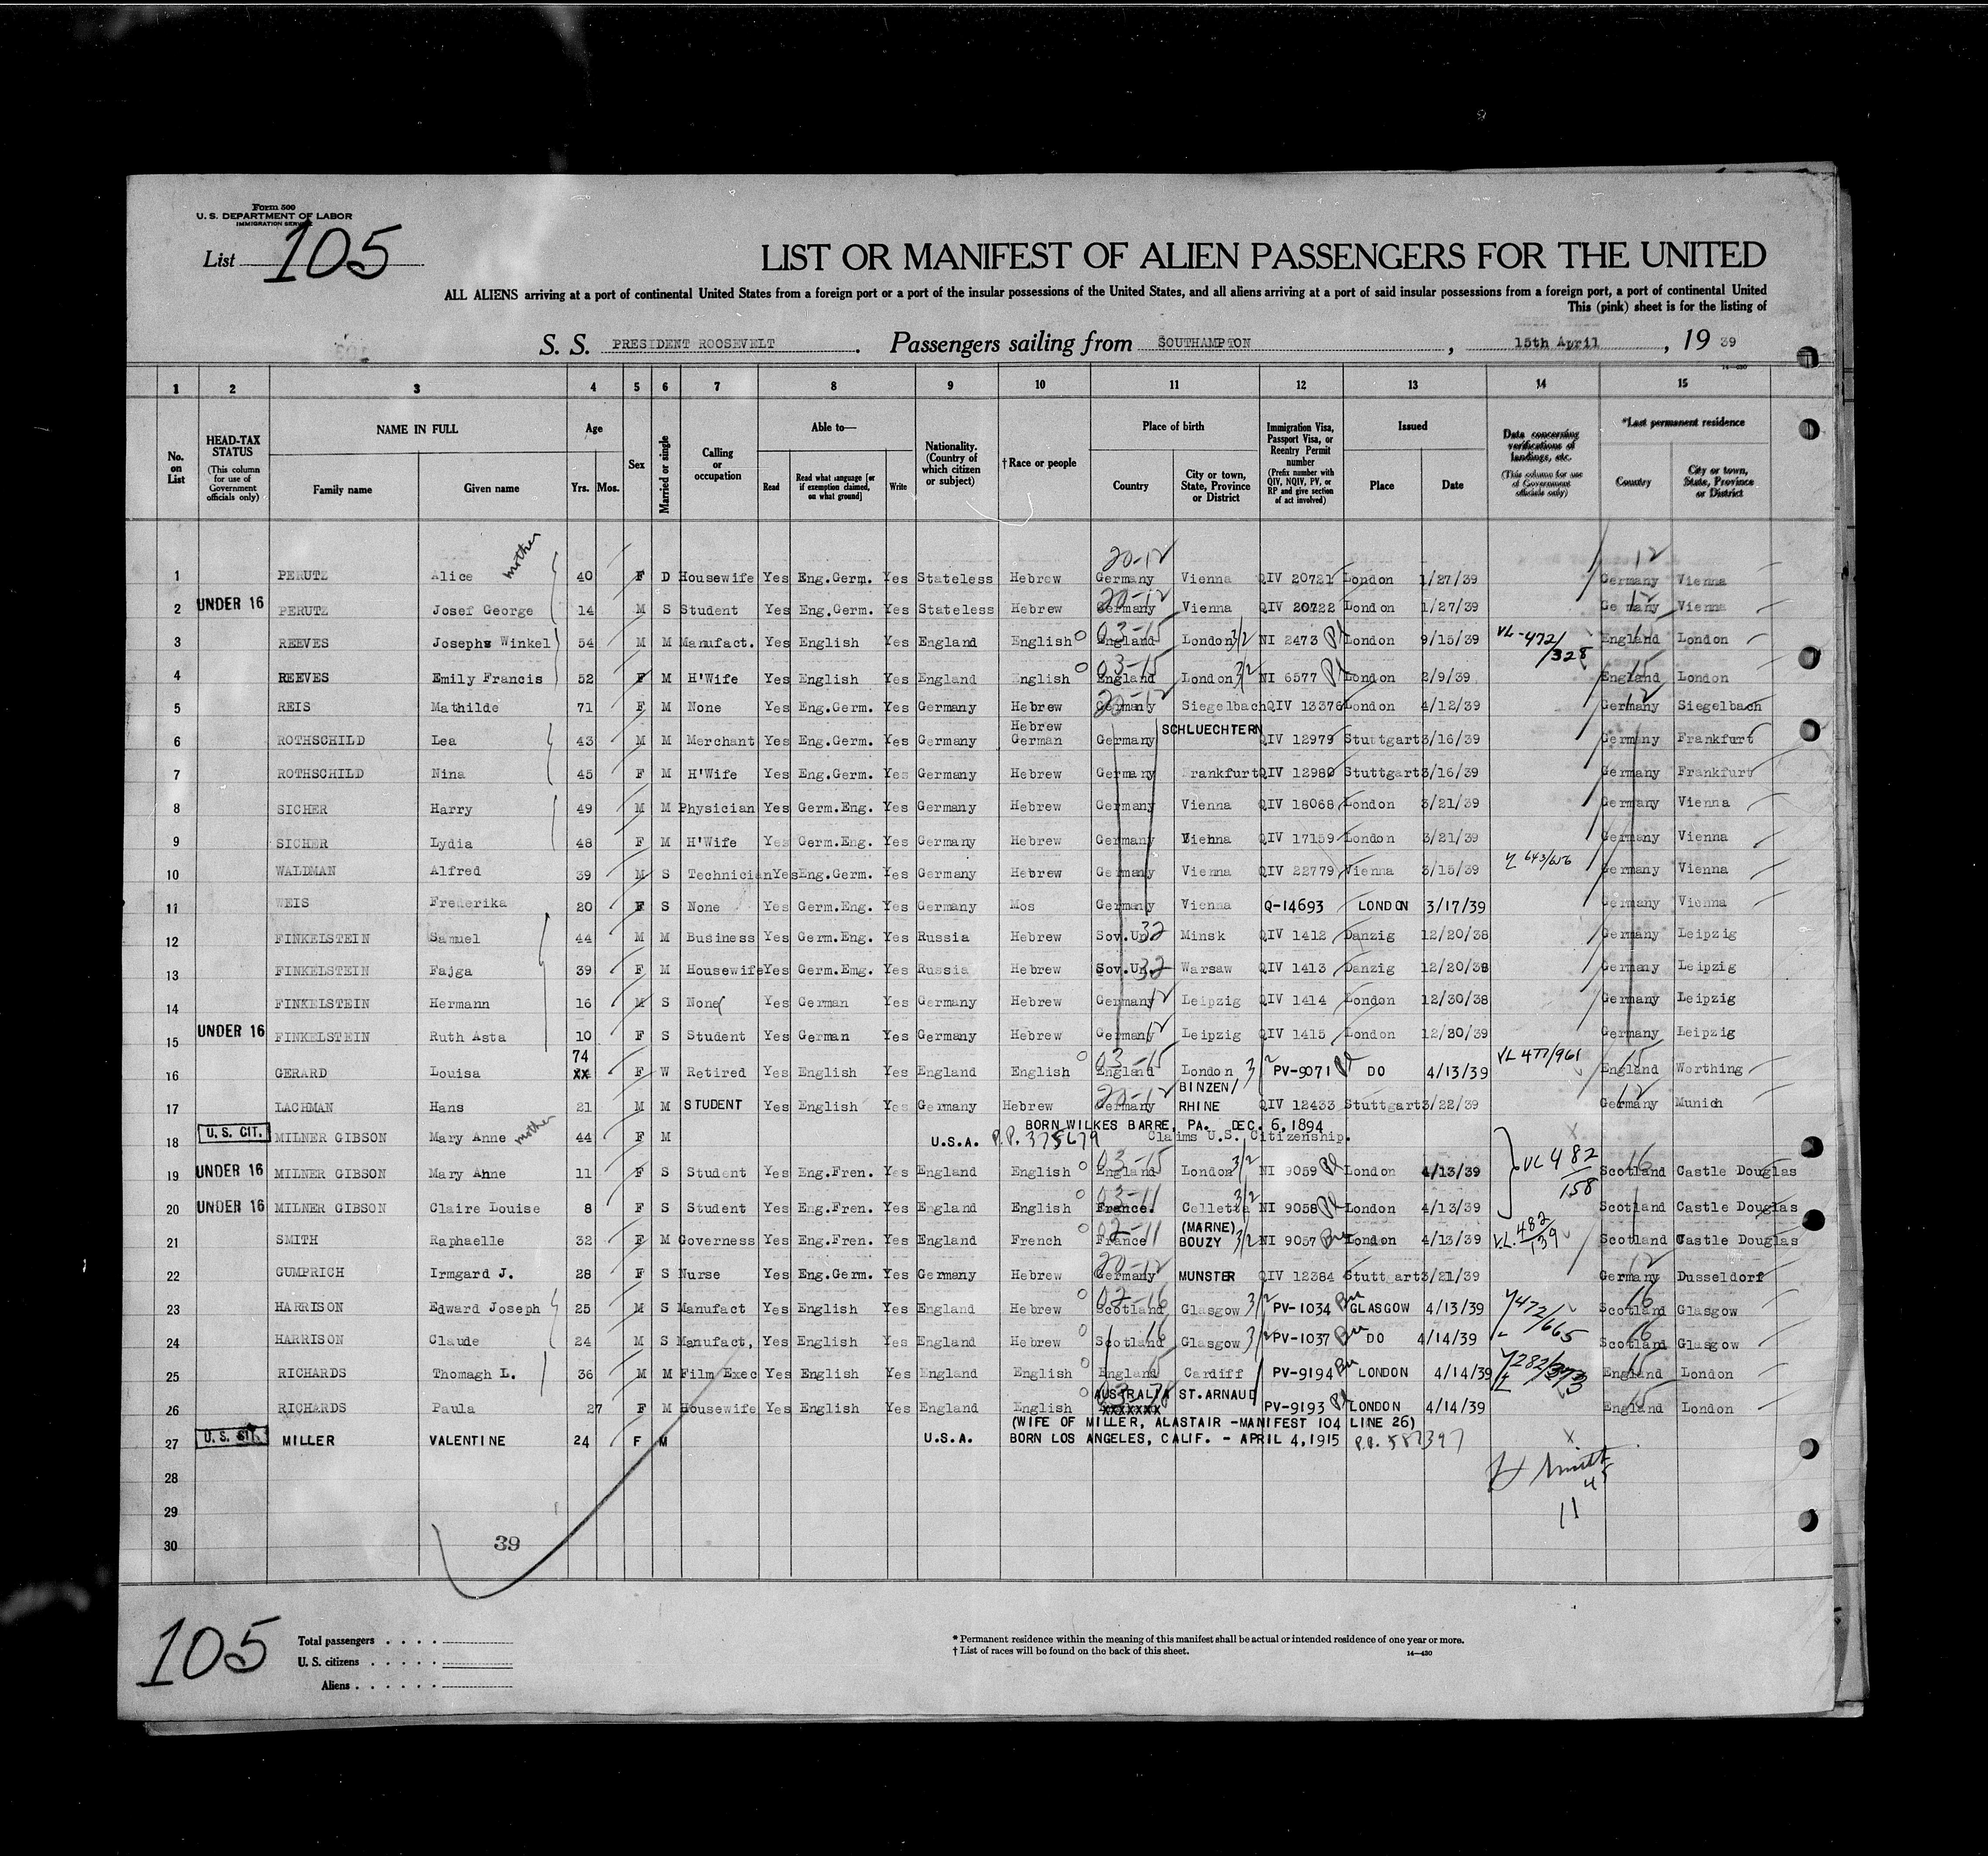 Form 500
U. S. DEPARTMENT OF LABOR
IMMIGRATION SERVICE
List 105
LIST OR MANIFEST OF ALIEN PASSENGERS FOR THE UNITED
ALL ALIENS arriving at a port of continental United States from a foreign port or a port of the insular possessions of the United States, and all aliens arriving at a port of said insular possessions from a foreign port, a port of continental United
This (pink) sheet is for the listing of
S. S. PRESIDENT ROOSEVELT. Passengers sailing from SOUTHAMPTON, 15th April, 19 39
14—430
1 2 3 4 5 6 7 8 9 10 11 12 13 14 15
No. on List
HEAD-TAX STATUS (This column for use of Government officials only)
NAME IN FULL
Family name Given name
Age
Yrs. Mos.
Sex
Married or single
Calling or occupation
Able to—
Read Read what language [or if exemption claimed, on what ground] Write
Nationality. (Country of which citizen or subject)
†Race or people
Place of birth
Country City or town, State, Province or District
Immigration Visa, Passport Visa, or Reentry Permit number (Prefix number with QIV, NQIV, PV, or RP and give section of act involved)
Issued
Place Date
Data concerning verifications of landings, etc. (This column for use of Government officials only)
*Last permanent residence
Country City or town, State, Province or District
1 PERUTZ Alice mother 40 F D Housewife Yes Eng.Germ. Yes Stateless Hebrew 20-12 Germany Vienna QIV 20721 London 1/27/39 12 Germany Vienna
2 UNDER 16 PERUTZ Josef George 14 M S Student Yes Eng.Germ. Yes Stateless Hebrew 20-12 Germany Vienna QIV 20722 London 1/27/39 12 Ge many Vienna
3 REEVES Josephs Winkel 54 M M Manufact. Yes English Yes England English 03-15 England London 3/2 NI 2473 London 9/15/39 VL-472/328 England London
4 REEVES Emily Francis 52 F M H'Wife Yes English Yes England English 03-15 England London 3/2 NI 6577 London 2/9/39 15 England London
5 REIS Mathilde 71 F M None Yes Eng.Germ. Yes Germany Hebrew 20-12 Germany Siegelbach QIV 13376 London 4/12/39 12 Germany Siegelbach
6 ROTHSCHILD Lea 43 M M Merchant Yes Eng.Germ. Yes Germany Hebrew German Germany SCHLUECHTERN QIV 12979 Stuttgart 3/16/39 Germany Frankfurt
7 ROTHSCHILD Nina 45 F M H'Wife Yes Eng.Germ. Yes Germany Hebrew Germany Frankfurt QIV 12980 Stuttgart 3/16/39 Germany Frankfurt
8 SICHER Harry 49 M M Physician Yes Germ.Eng. Yes Germany Hebrew Germany Vienna QIV 18068 London 3/21/39 Germany Vienna
9 SICHER Lydia 48 F M H'Wife Yes Germ.Eng. Yes Germany Hebrew Germany Vienna QIV 17159 London 3/21/39 Germany Vienna
10 WALDMAN Alfred 39 M S Technician Yes Eng.Germ. Yes Germany Hebrew Germany Vienna QIV 22779 Vienna 3/15/39 643/656 Germany Vienna
11 WEIS Frederika 20 F S None Yes Germ.Eng. Yes Germany Mos Germany Vienna Q-14693 LONDON 3/17/39 Germany Vienna
12 FINKELSTEIN Samuel 44 M M Business Yes Germ.Eng. Yes Russia Hebrew Sov.Un 32 Minsk QIV 1412 Danzig 12/20/38 Germany Leipzig
13 FINKELSTEIN Fajga 39 F M Housewife Yes Germ.Emg. Yes Russia Hebrew Sov.Un 32 Warsaw QIV 1413 Danzig 12/20/38 Germany Leipzig
14 FINKELSTEIN Hermann 16 M S None Yes German Yes Germany Hebrew Germany 12 Leipzig QIV 1414 London 12/30/38 Germany Leipzig
15 UNDER 16 FINKELSTEIN Ruth Asta 10 F S Student Yes German Yes Germany Hebrew Germany 12 Leipzig QIV 1415 London 12/20/39 Germany Leipzig
16 GERARD Louisa 74 xx F W Retired Yes English Yes England English 03-15 England London 3/2 PV-9071 DO 4/13/39 VL 477/961 15 England Worthing
17 LACHMAN Hans 21 M M STUDENT Yes English Yes Germany Hebrew 20-12 Germany BINZEN/ RHINE QIV 12433 Stuttgart 3/22/39 12 Germany Munich
BORN WILKES BARRE, PA. DEC. 6, 1894
18 U. S. CIT. MILNER GIBSON Mary Anne mother 44 F M U.S.A. P.P. 375679 Claims U.S. Citizenship. x
19 UNDER 16 MILNER GIBSON Mary Anne 11 F S Student Yes Eng.Fren. Yes England English 03-15 England London 3/2 NI 9059 London 4/13/39 VL 482/158 16 Scotland Castle Douglas
20 UNDER 16 MILNER GIBSON Claire Louise 8 F S Student Yes Eng.Fren. Yes England English 03-11 France. Celletta 3/2 NI 9058 London 4/13/39 Scotland Castle Douglas
21 SMITH Raphaelle 32 F M Governess Yes Eng.Fren. Yes England French 02-11 France (MARNE) BOUZY 3/2 NI 9057 London 4/13/39 V.L. 482/139 Scotland Castle Douglas
22 GUMPRICH Irmgard J. 28 F S Nurse Yes Eng.Germ. Yes Germany Hebrew 20-12 Germany MUNSTER QIV 12384 Stuttgart 3/21/39 12 Germany Dusseldorf
23 HARRISON Edward Joseph 25 M S Manufact Yes English Yes England Hebrew 02-16 Scotland Glasgow 3/2 PV-1034 GLASGOW 4/13/39 472/665 16 Scotland Glasgow
24 HARRISON Claude 24 M S Manufact, Yes English Yes England Hebrew 16 Scotland Glasgow 3/2 PV-1037 DO 4/14/39 16 Scotland Glasgow
25 RICHARDS Thomagh L. 36 M M Film Exec Yes English Yes England English 15 England Cardiff PV-9194 LONDON 4/14/39 282/373 15 England London
26 RICHARDS Paula 27 F M Housewife Yes English Yes England English AUSTRALIA xxxxxxx ST.ARNAUD PV-9193 LONDON 4/14/39 15 England London
(WIFE OF MILLER, ALASTAIR -MANIFEST 104 LINE 26)
27 U. S. CIT. MILLER VALENTINE 24 F M U.S.A. BORN LOS ANGELES, CALIF. - APRIL 4, 1915 P.P. 587397 x
28 Smith
29 11
30 39
105
Total passengers
U. S. citizens
Aliens
* Permanent residence within the meaning of this manifest shall be actual or intended residence of one year or more.
† List of races will be found on the back of this sheet.
14—430